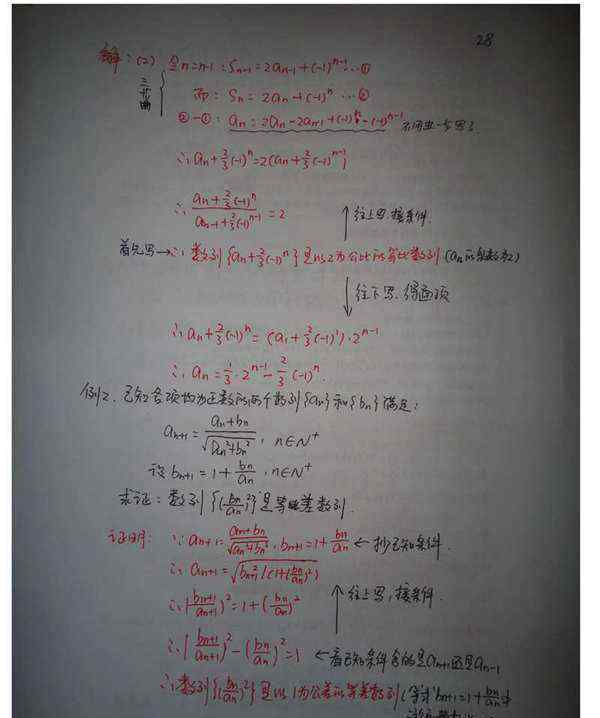 28
解:(2) 令n=n-1:Sn-1=2an-1+(-1)^(n-1)…①
三步曲
而:Sn=2an+(-1)^n …②
②-①:an=2an-2an-1+(-1)^n-(-1)^(n-1)
∴an+2/3(-1)^n=2(an+2/3(-1)^(n-1))
∴(an+2/3(-1)^n)/(an-1+2/3(-1)^(n-1))=2
↑往上写,接条件.
首先写→∴数列{an+2/3(-1)^n}是以2为公比的等比数列(an的系数为2)
↓往下写,得通项
∴an+2/3(-1)^n=(a1+2/3(-1)^1)·2^(n-1)
∴an=1/3·2^(n-1)-2/3(-1)^n.
例2.已知各项均为正数的两个数列{an}和{bn}满足:
an+1=(an+bn)/√(an²+bn²),n∈N+
设bn+1=1+bn/an,n∈N+
求证:数列{(bn/an)²}是等差数列.
证明:∵an+1=(an+bn)/√(an²+bn²),bn+1=1+bn/an ←抄已知条件.
∴an+1=√(bn+1²/(1+(bn/an)²))
∴(bn+1/an+1)²=1+(bn/an)²
↑往上写,接条件.
∴(bn+1/an+1)²-(bn/an)²=1 ←看已知条件含的是an+1还是an-1
∴数列{(bn/an)²}是以1为公差的等差数列(等求bn+1=1+bn/an